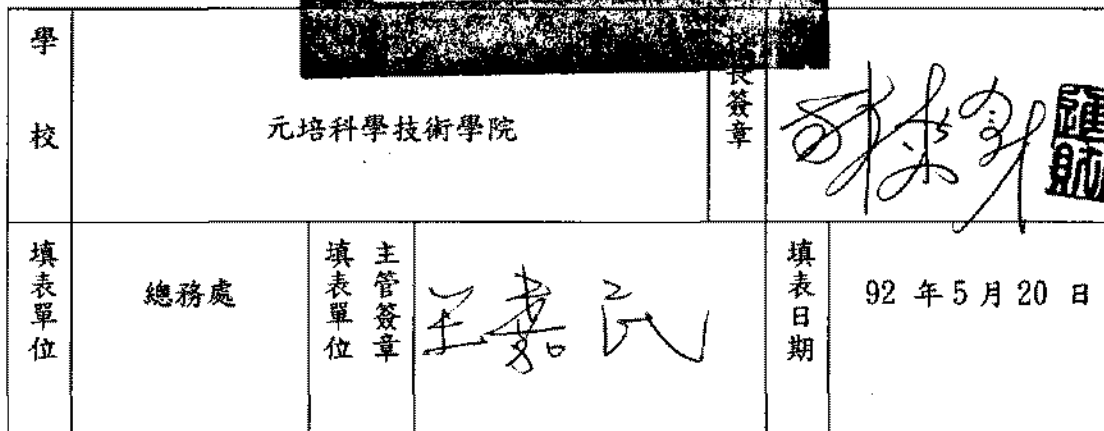 學校
元培科學技術學院
長簽章
填表單位
總務處
填表單位
主管簽章
王嘉民
填表日期
92 年 5 月 20 日